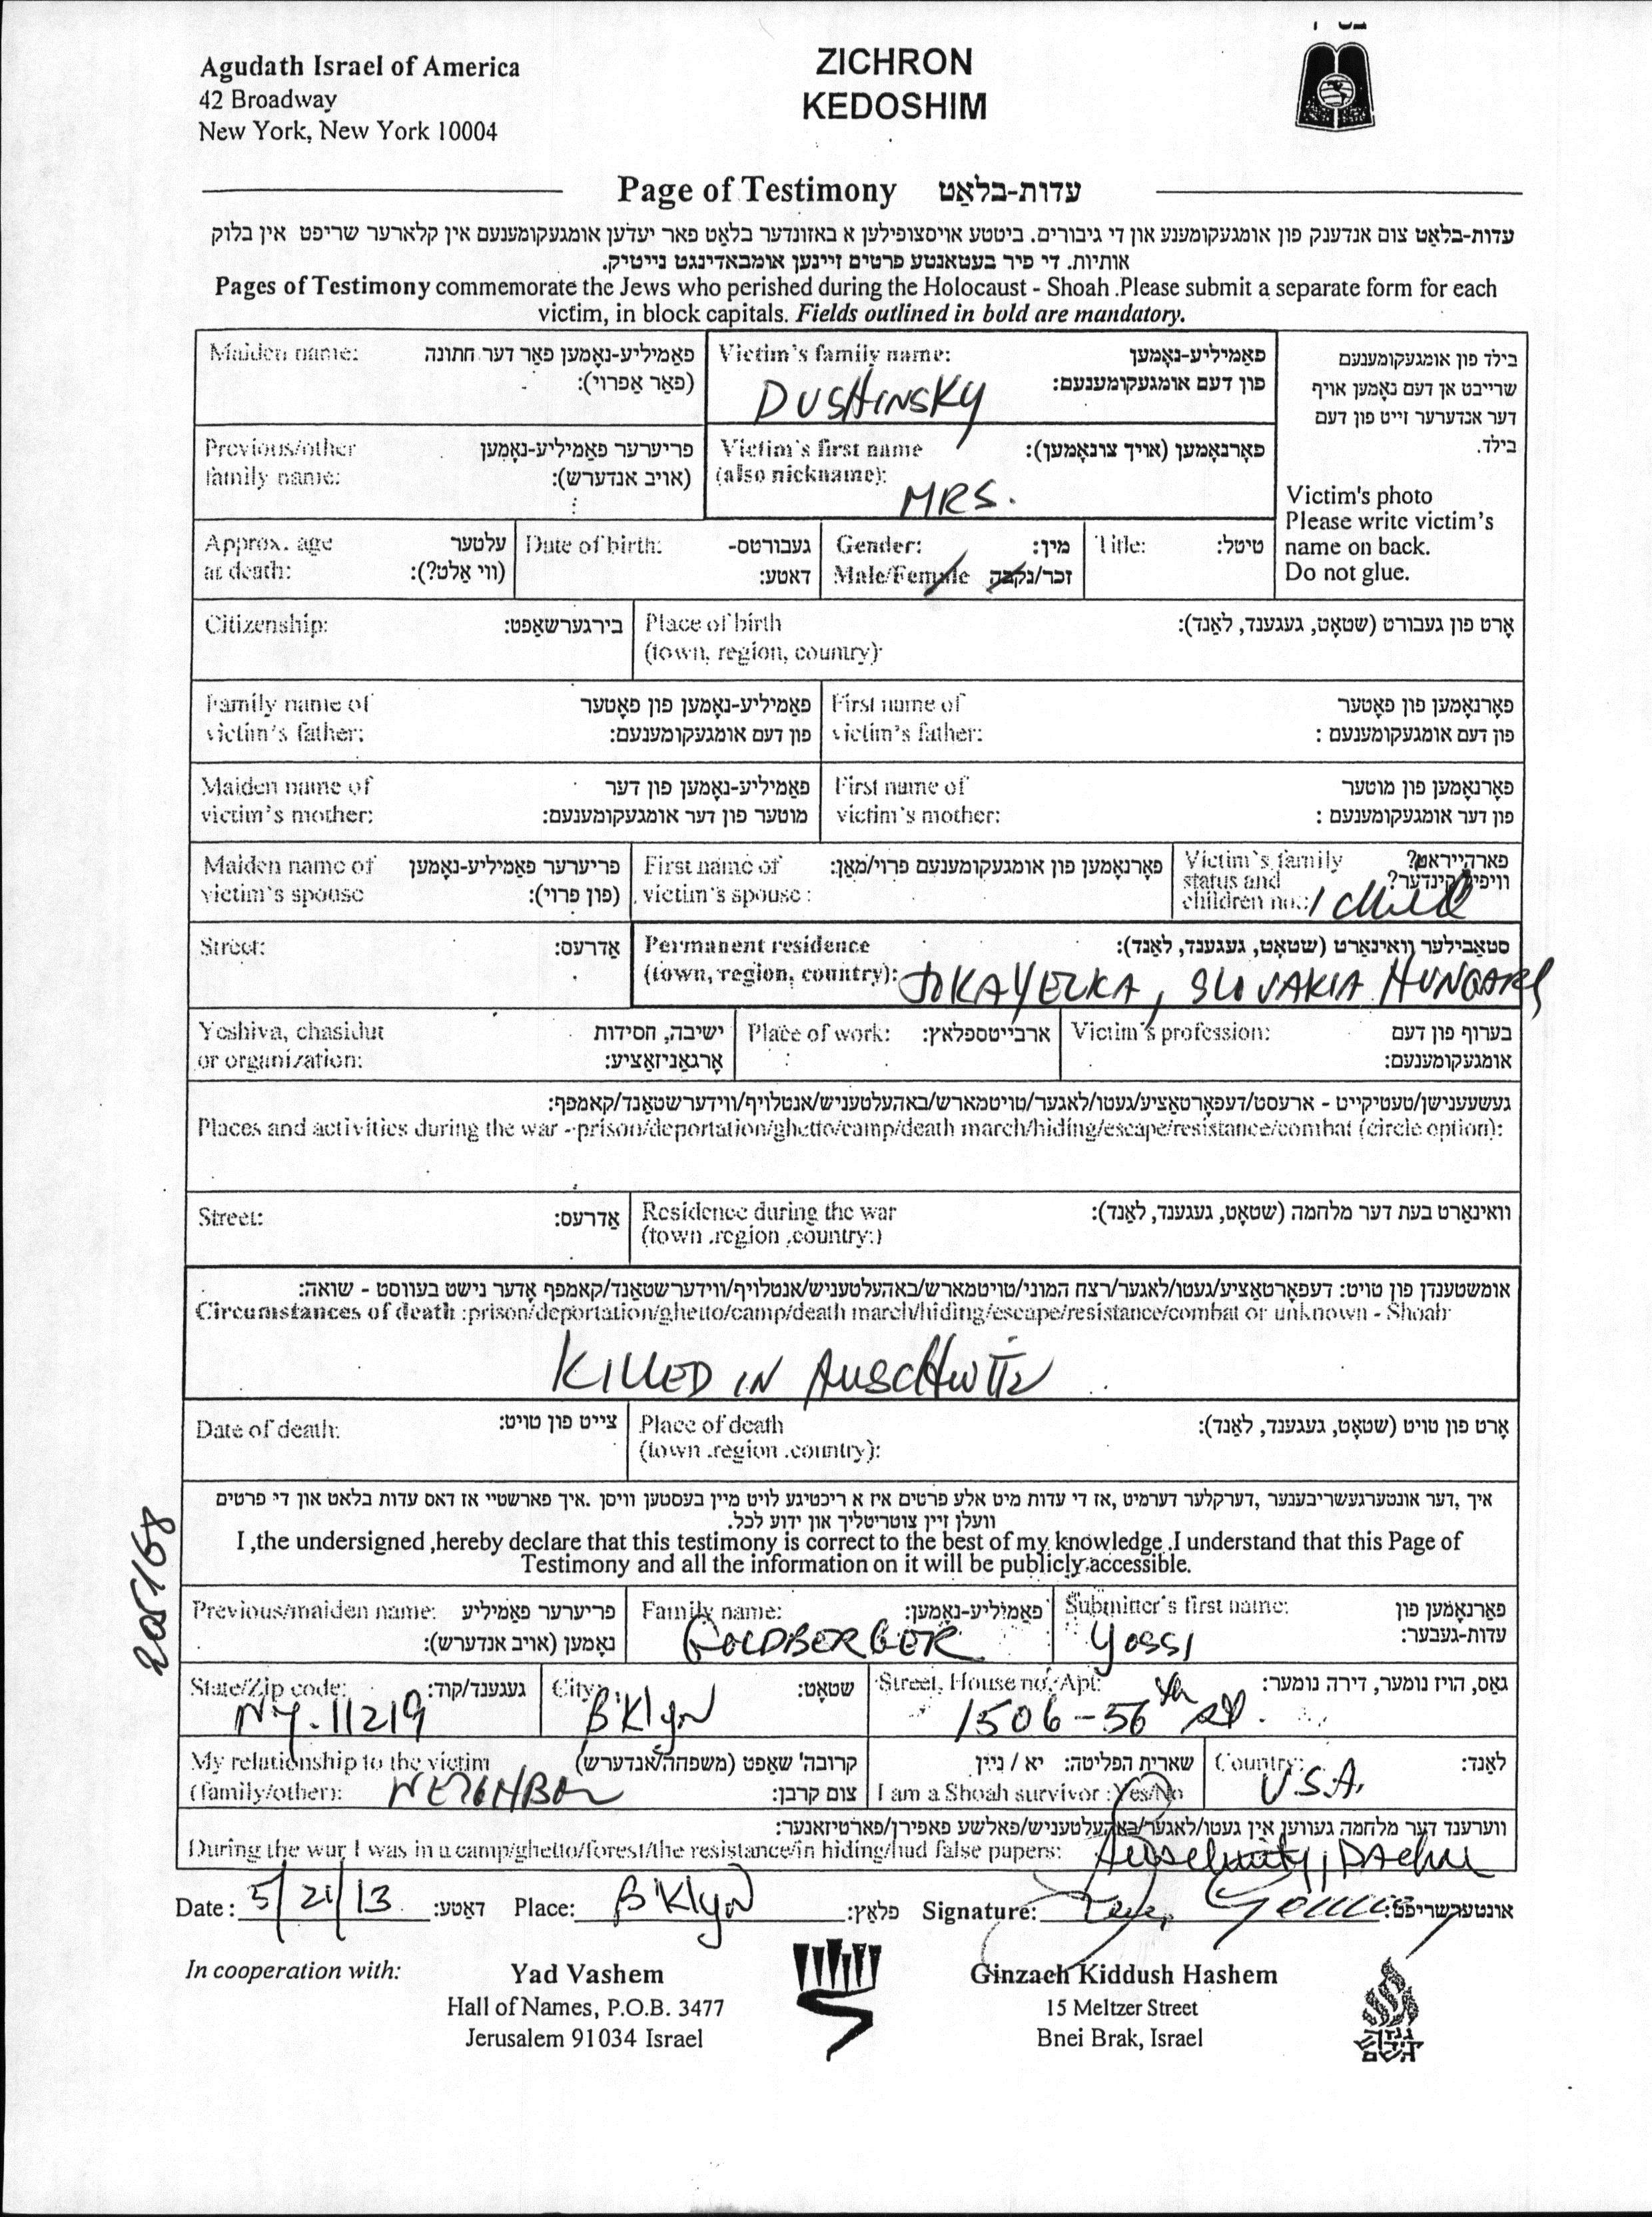 Agudath Israel of America
42 Broadway
New York, New York 10004
ZICHRON
KEDOSHIM
Page of Testimony עדות-בלאַט
עדות-בלאַט צום אנדענק פון אומגעקומענע און די גיבורים. ביטע אויסצופילען א באזונדער בלאַט פאר יעדען אומגעקומענעם אין קלארער שריפט אין בלוק
אותיות. די פיר בעטאנטע פרטים זיינען אומבאדינגט נייטיק.
Pages of Testimony commemorate the Jews who perished during the Holocaust - Shoah .Please submit a separate form for each
victim, in block capitals. Fields outlined in bold are mandatory.
Maiden name: פאַמיליע-נאָמען פאַר דער חתונה
(פאַר אַפרוי):
Victim's family name: פאַמיליע-נאָמען
פון דעם אומגעקומענעם:
DUSHINSKY
Previous/other פריערער פאַמיליע-נאָמען
family name: (אויב אנדערש):
Victim's first name פאָרנאָמען (אויך צונאָמען):
(also nickname):
MRS.
בילד פון אומגעקומענעם
שרייבט אן דעם נאָמען אויף
דער אנדערער זייט פון דעם
בילד.
Victim's photo
Please write victim's
name on back.
Do not glue.
Approx. age עלטער
at death: (ווי אַלט?):
Date of birth: געבורטס-
דאטע:
Gender: מין:
Male/Female זכר/נקבה
Title: טיטל:
Citizenship: בירגערשאַפט:
Place of birth אָרט פון געבורט (שטאָט, געגענד, לאַנד):
(town, region, country):
Family name of פאַמיליע-נאָמען פון פאָטער
victim's father: פון דעם אומגעקומענעם:
First name of פאָרנאָמען פון פאָטער
victim's father: פון דעם אומגעקומענעם :
Maiden name of פאַמיליע-נאָמען פון דער
victim's mother: מוטער פון דער אומגעקומענעם:
First name of פאָרנאָמען פון מוטער
victim's mother: פון דער אומגעקומענעם :
Maiden name of פריערער פאַמיליע-נאָמען
victim's spouse (פון פרוי):
First name of פאָרנאָמען פון אומגעקומענעם פרוי/מאַן:
victim's spouse :
Victim's family פארהייראט?
status and וויפיל קינדער?
children no.: 1 child
Street: אַדרעס:
Permanent residence סטאַבילער וואוינאָרט (שטאָט, געגענד, לאַנד):
(town, region, country): TOKAYELKA, SLOVAKIA HUNGARY
Yeshiva, chasidut ישיבה, חסידות
or organization: אָרגאַניזאַציע:
Place of work: ארבייטספלאץ:
Victim's profession: בערוף פון דעם
אומגעקומענעם:
געשעענישן/טעטיקייט - ארעסט/דעפאָרטאַציע/געטו/לאגער/טויטמארש/באהעלטעניש/אנטלויף/ווידערשטאַנד/קאמפף:
Places and activities during the war - prison/deportation/ghetto/camp/death march/hiding/escape/resistance/combat (circle option):
Street: אַדרעס:
Residence during the war וואוינאָרט בעת דער מלחמה (שטאָט, געגענד, לאַנד):
(town .region .country:)
אומשטענדן פון טויט: דעפאָרטאַציע/געטו/לאגער/רצח המוני/טויטמארש/באהעלטעניש/אנטלויף/ווידערשטאַנד/קאמפף אָדער נישט בעוואוסט - שואה:
Circumstances of death :prison/deportation/ghetto/camp/death march/hiding/escape/resistance/combat or unknown - Shoah:
KILLED IN AUSCHWITZ
Date of death: צייט פון טויט:
Place of death אָרט פון טויט (שטאָט, געגענד, לאַנד):
(town .region .country):
איך ,דער אונטערגעשריבענער ,דערקלער דערמיט ,אז די עדות מיט אלע פרטים איז א ריכטיגע לויט מיין בעסטען וויסן .איך פארשטיי אז דאס עדות בלאט און די פרטים
וועלן זיין צוטריטליך און ידוע לכל.
I ,the undersigned ,hereby declare that this testimony is correct to the best of my knowledge .I understand that this Page of
Testimony and all the information on it will be publicly accessible.
Previous/maiden name: פריערער פאַמיליע
נאָמען (אויב אנדערש):
Family name: פאַמיליע-נאָמען:
GOLDBERGER
Submitter's first name: פאַרנאָמען פון
עדות-געבער:
Yossi
State/Zip code: געגענד/קוד:
NY. 11219
City: שטאָט:
B'Klyn
Street, House no., Apt: גאַס, הויז נומער, דירה נומער:
1506 - 56th St.
My relationship to the victim קרובה' שאַפט (משפחה/אנדערש)
(family/other): צום קרבן:
NEIGHBOR
שארית הפליטה: יא / ניין
I am a Shoah survivor : Yes/No
Country: לאַנד:
U.S.A.
ווערענד דער מלחמה געווען אין געטו/לאגער/באהעלטעניש/פאלשע פאפירן/פארטיזאנער:
During the war I was in a camp/ghetto/forest/the resistance/in hiding/had false papers: Auschwitz, Dachau
Date : 5/21/13 דאטע: Place: B'Klyn פּלאַץ: Signature: אונטערשריפט:
205168
In cooperation with:
Yad Vashem
Hall of Names, P.O.B. 3477
Jerusalem 91034 Israel
Ginzach Kiddush Hashem
15 Meltzer Street
Bnei Brak, Israel
גנזך
קידוש
השם